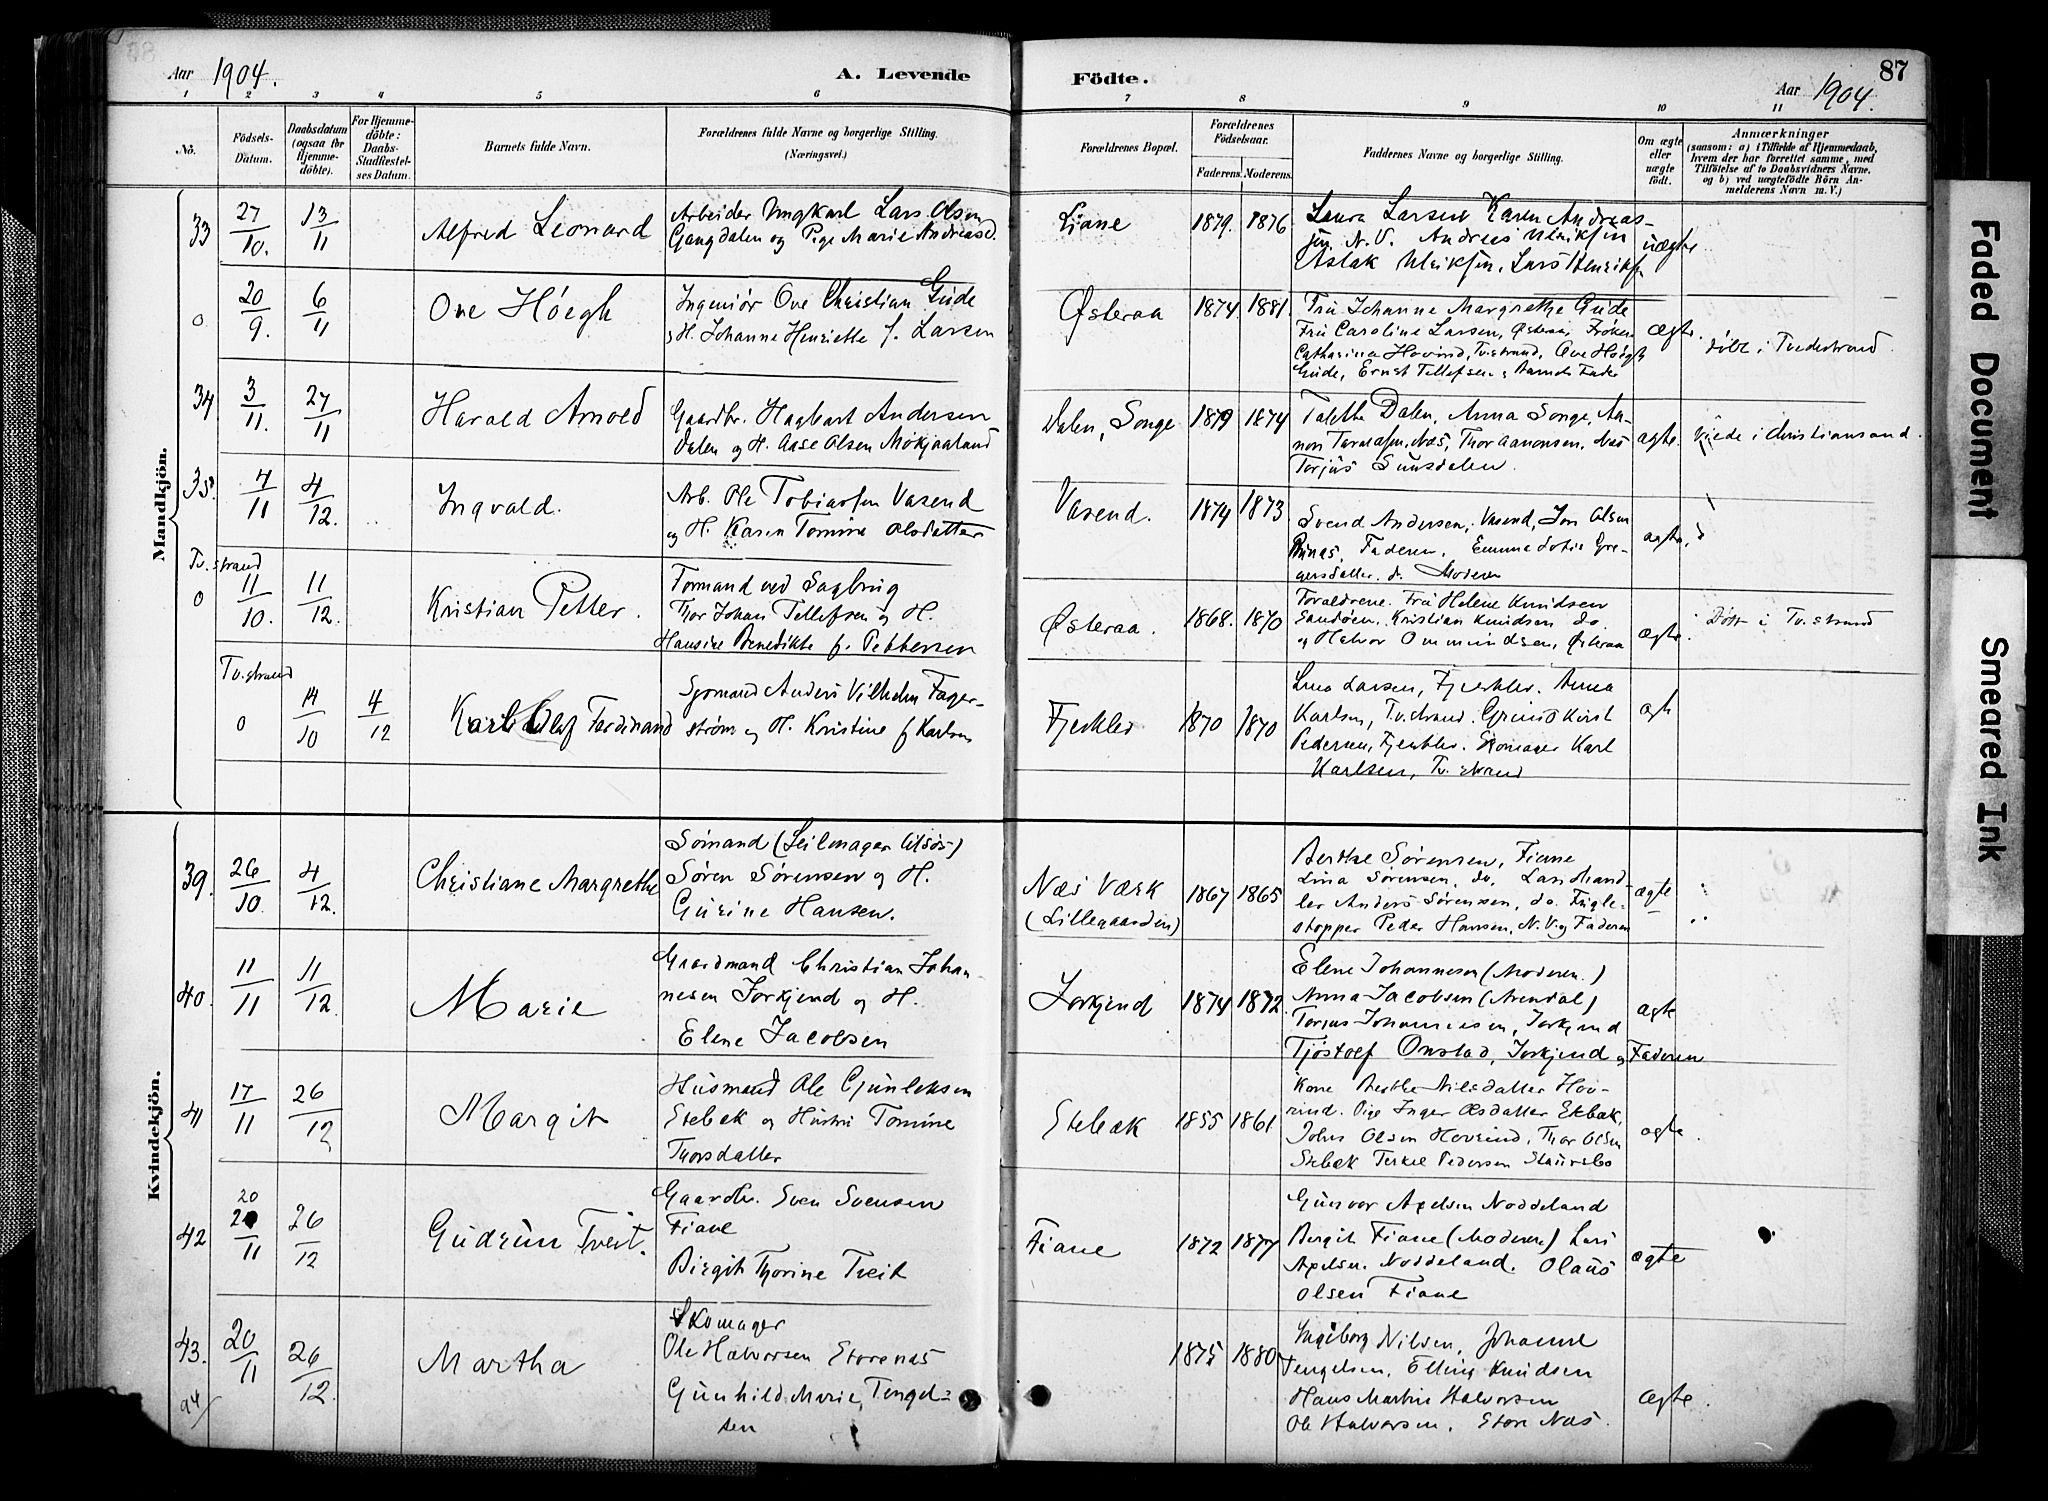 Aar 1904.
A. Levende
Födte.
87
Aar 1904.
1 2 3 4 5 6 7 8 9 10 11
No.
Födsels-
Datum.
Daabsdatum
(ogsaa for
Hjemme-
döbte).
For Hjemme-
döbte:
Daabs-
Stadfæstel-
ses Datum.
Barnets fulde Navn.
Forældrenes fulde Navne og borgerlige Stilling.
(Næringsvei.)
Forældrenes Bopæl.
Forældrenes
Födselsaar.
Faderens. Moderens.
Faddernes Navne og borgerlige Stilling.
Om ægte
eller
uægte
født.
Anmærkninger
(saasom: a) i Tilfælde af Hjemmedaab,
hvem der har forrettet samme, med
Tilföielse af to Daabsvidners Navne.
og b) ved uægtefödte Börn An-
melderens Navn m. V.)
Mandkjön.
33 27/10. 13/11 Alfred Leonard
Arbeider Ungkarl Lars Olsen
Gangdalen og Pige Marie Andreasd.
Liane 1879. 1876
Laura Larsen Karen Andreas-
sen N. V. Andreas Ulriksen
Aslak Ulriksen. Lars Henriksen
uægte
0 20/9. 6/11 Ove Höegh
Ingeniör Ove Christian Gude
og H. Johanne Henriette f. Larsen
Østeraa 1874. 1881.
Fru Johanne Margrethe Gude
Fru Caroline Larsen, Østeraa, Frøken
Catharina Hovind, Tv.strand, Ove Höegh
Gude, Ernst Tellefsen, Barnets Fader
ægte.
döbt i Tvedestrand
34 3/11. 27/11 Harald Arnold
Gaardbr. Hagbart Andersen
Dalen og H. Aase Olsen Mökjaaland
Dalen, Songe 1879 1874
Dalen, Anna Songe, Aa-
non Næs, Thor Aanonsen, Næs
Torjus Sunsdalen.
ægte.
i Christiansand.
35. 4/11 4/12. Ingvald.
Arb. Ole Tobiassen Vasend
og H. Karen Tomine Olsdatter
Vasend. 1874 1873
Svend Andersen, Vasend, Jon Olsen
Faderen, Emma Sofie Gre-
gersdatter. do. Moderen
ægte.
Tv.strand
0 11/10. 11/12. Kristian Petter.
Formand ved Sagbrug
Thor Johan Tellefsen og H.
Hansine Benedikte f. Pettersen
Østeraa. 1868. 1870
Forældrene. Fru Helene Knudsen
Sandöen. Kristian Knudsen do.
og Halvor Ommundsen, Østeraa
ægte.
Döbt i Tv.strand
Tv.strand
0 14/10 4/12 Karl Olaf Ferdinand
Sjömand Anders Vilhelm Fager-
ström og H. Kristine f Karlsen
Fjerkler 1870 1870
Lina Larsen, Fjerkler. Anna
Karlsen, Tv.strand.
Pedersen, Fjerkler. Skomager Karl
Karlsen, Tv. strand
ægte
Kvindekjön.
39. 26/10. 4/12. Christiane Margrethe
Sömand (Seilmager)
Sören Sörensen og H.
Gurine Hansen.
Næs Værk
(Lillegaarden)
1867 1865
Berthe Sörensen, Fiane
Lina Sörensen, do. Landhand-
ler Anders Sörensen, do. Fugle-
stopper Peder Hansen, N.V. og Faderen
ægte
40. 11/11 11/12. Marie
Gaardmand Christian Johan
nesen Jorkjend og H.
Elene Jacobsen
Jorkjend 1874 1872.
Elene Johannesen (Moderen.)
Anna Jacobsen (Arendal)
Torjus Johannesen, Jorkjend
Tjöstolf Onstad, Jorkjend og Faderen
ægte
41 17/11 26/12 Margit
Husmand Ole Gunleksen
Stebæk og Hustru Tomine
Thorsdatter
Stebæk 1855 1861
Kone Berthe Nilsdatter Hov-
rind. Pige Inger Olsdatter Stebæk,
Johs Olsen Hovrind, Thor Olsen
Stebæk Terkel Pedersen
ægte.
42 20/11 26/12 Gudrun Tveit.
Gaardbr. Sven Svensen
Fiane
Birgit Thorine Tveit
Fiane 1872 1877
Gunvor Axelsen Noddeland
Bergit Fiane (Moderen) Lars
Axelsen. Noddeland. Olaus
Olsen Fiane
ægte
43. 20/11 26/12. Martha
Skomager
Ole Halvorsen Storenæs
Gunhild Marie Tengel-
sen
1875 1880
Ingeborg Nilsen, Johanne
Tengelsen, Elling Knudsen
Hans Martin Halvorsen
Ole Halvorsen, Store Næs.
ægte.
Faded Document
Smeared Ink